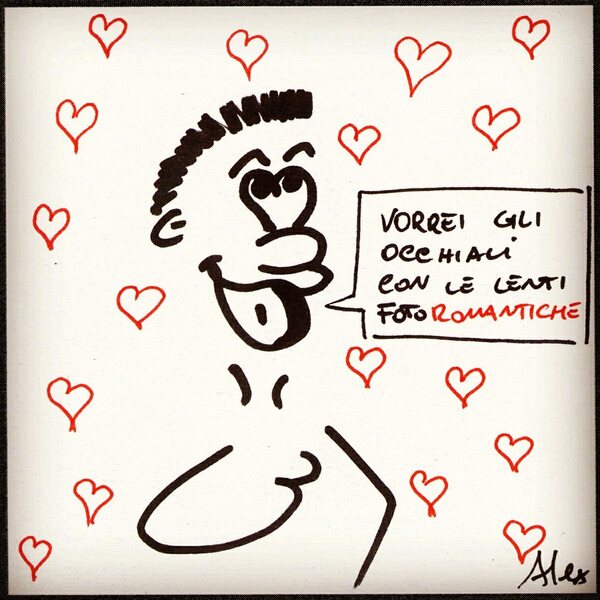 VORREI GLI
OCCHIALI
CON LE LENTI
FOTOROMANTICHE
Alex